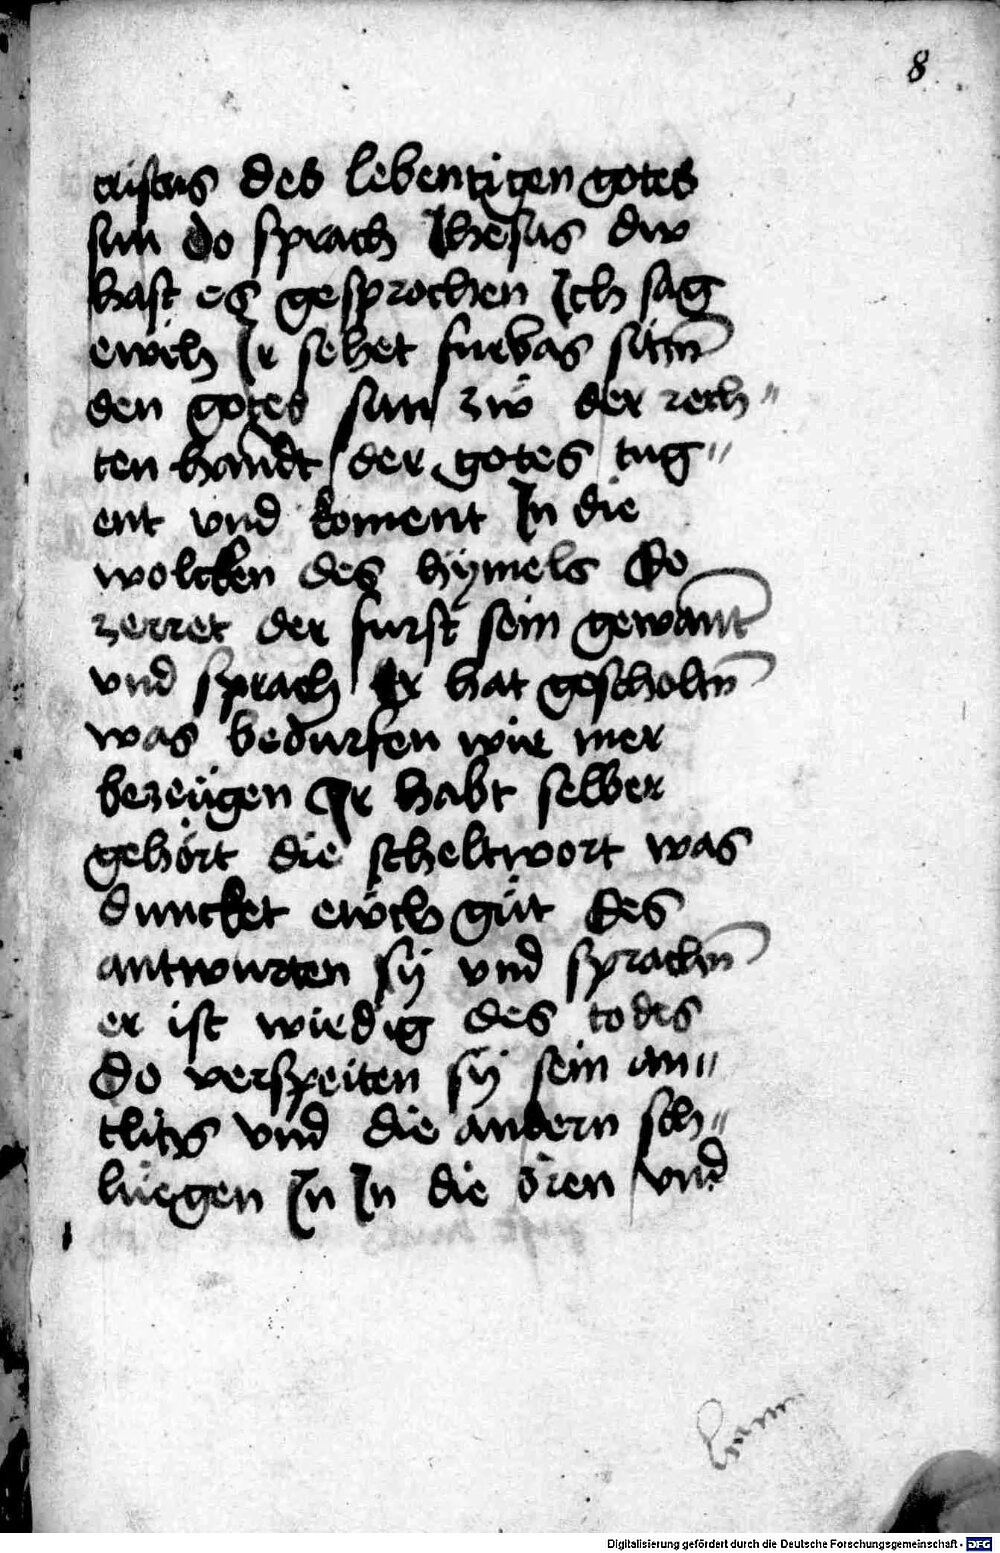 8
cristus des lebentigen gotes
sun do sprach Ihesus dw
hast es gesprochen Ich sag
ewch Ir sehet furbas sitzn
den gotes sun zẅ der rech〃
ten handt der gotes tug〃
ent vnd koment In die
wolcken des hÿmels Do
zerret der furst sein gewant
vnd sprach Er hat gescholtn
was bedurfen wir mer
bezeügen Ir habt selber
gehört die scheltwort was
duncket ewch güt des
antwurten sÿ vnd sprachn
er ist wirdig des todes
do verspeiten sÿ sein an〃
tlitz vnd die andern sch〃
luegen In In die oren vnd
Digitalisierung gefördert durch die Deutsche Forschungsgemeinschaft - DFG